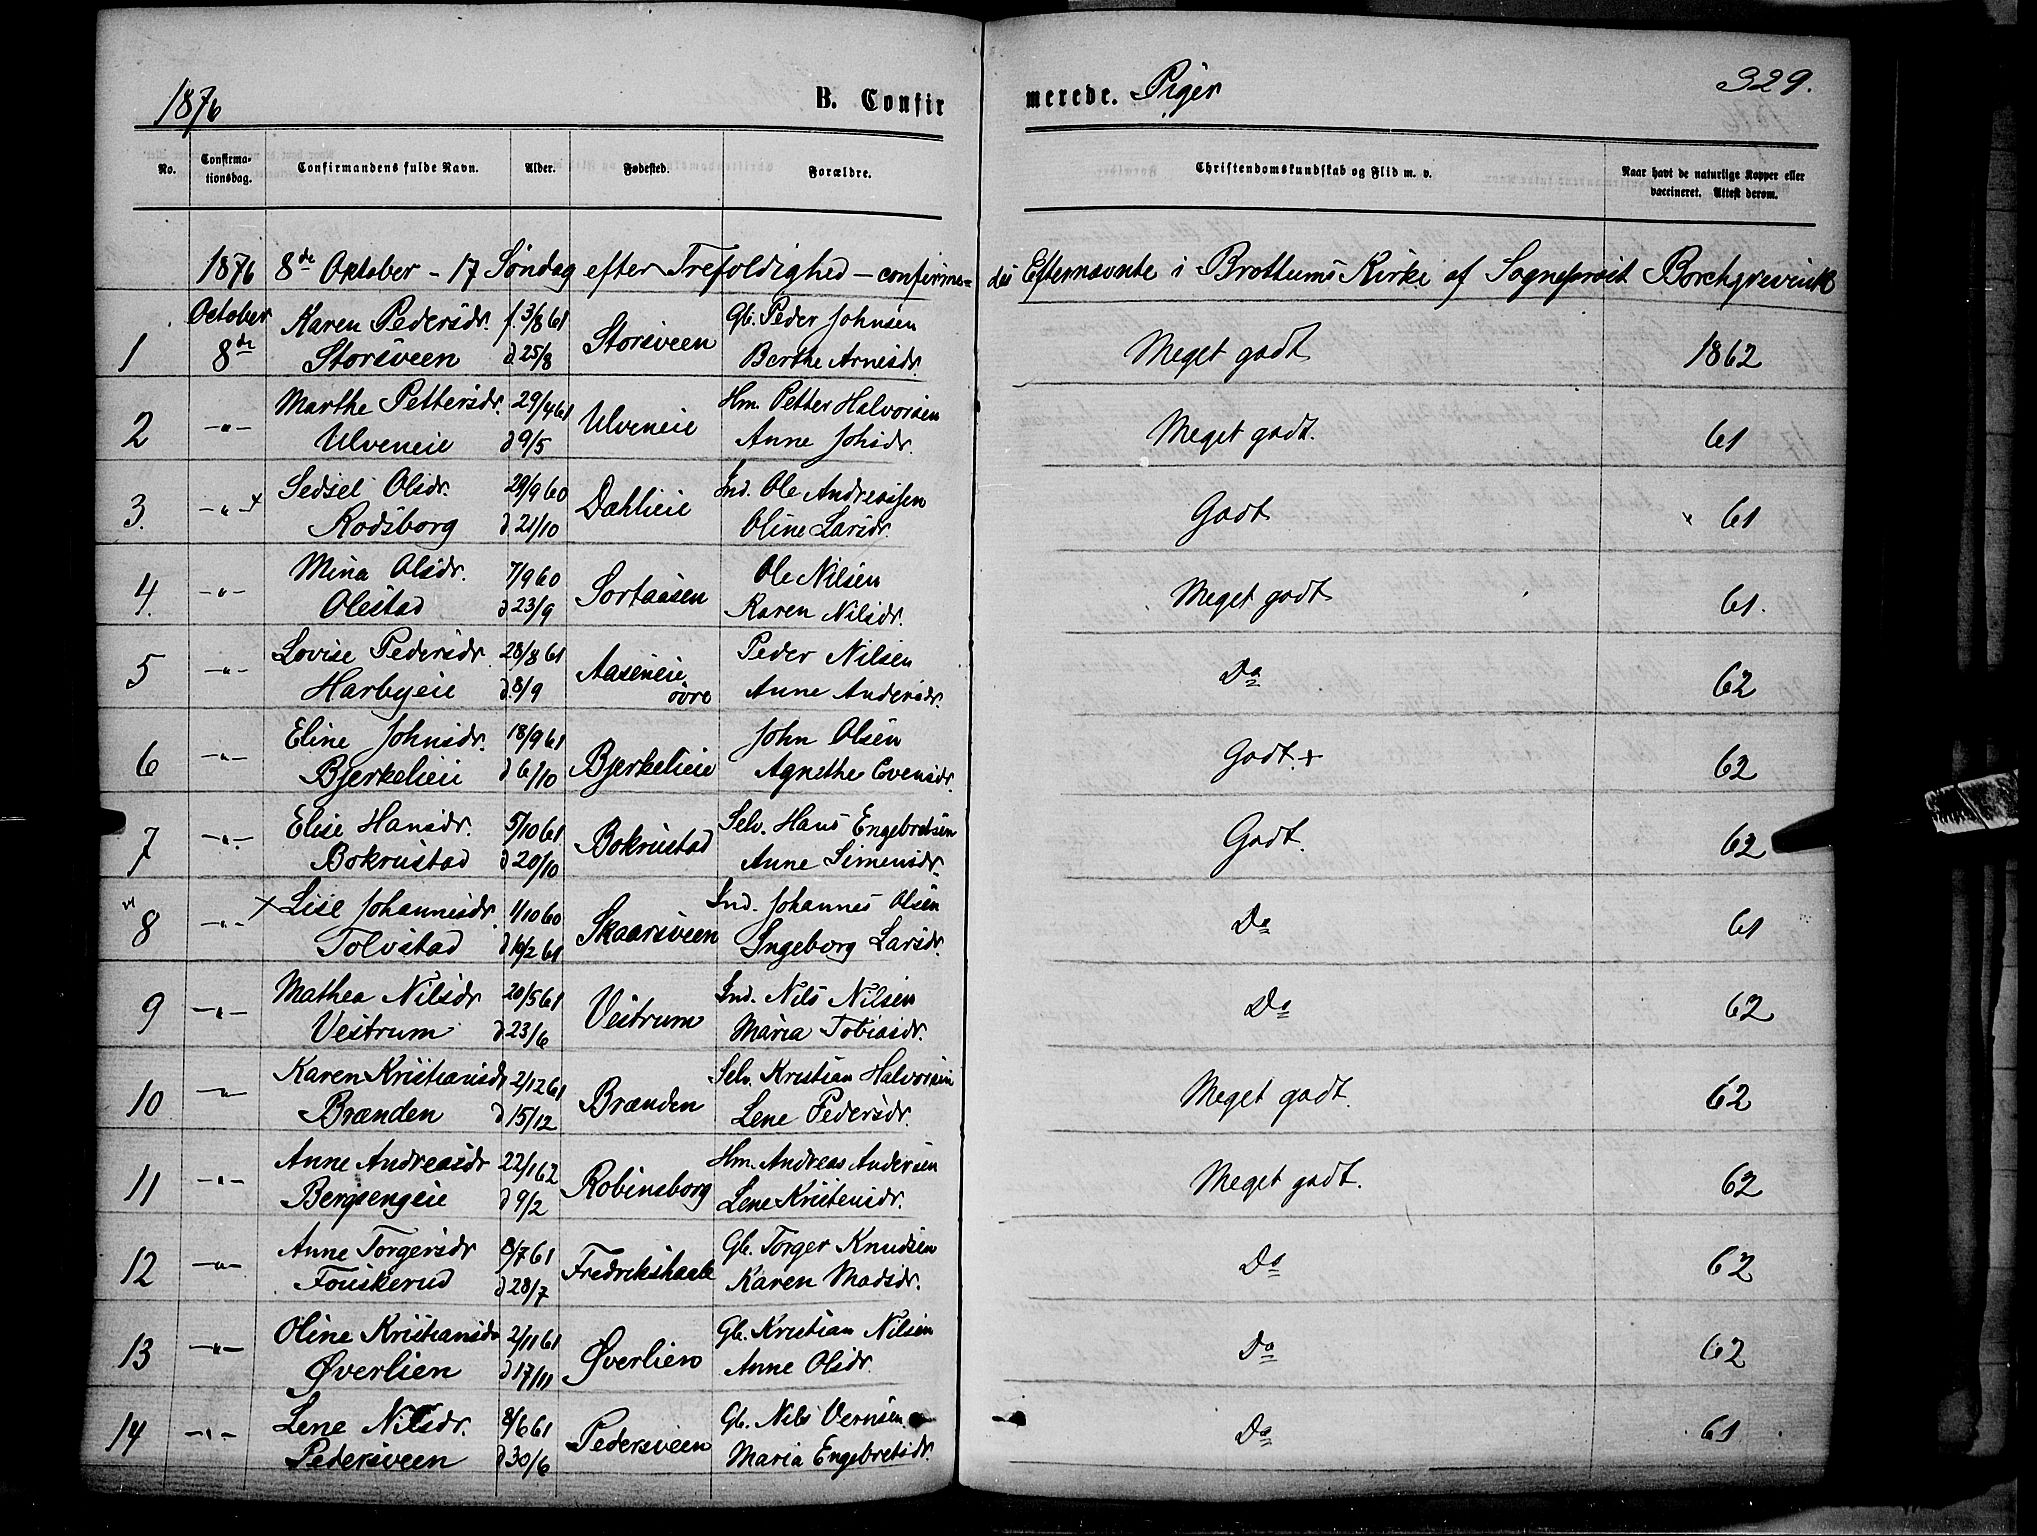 1876
B. Confirmerede. Piger
329.
No. Confirmationsdag. Confirmandens fulde Navn. Alder. Fødested. Forældre. Christendomskundskab og Flid m. v. Naar havt de naturlige Kopper eller vaccineret. Attest derom.
1876 8de Oktober - 17 Søndag efter Trefoldighed - confirmedes Efternævnte i Brøttums Kirke af Sogneprest Borchgrevink
October Karen Pedersdr. f. 3/8 61 Storsveen Gb. Peder Johnsen
1 8de Storsveen d 25/8 Berthe Arnesdr. Meget godt 1862
Marthe Pettersdr. 29/4 61 Ulveneie Hm. Petter Halvorsen
2 -"- Ulveneie d 9/5 Anne Johsdr. Meget godt. 61
Sedsel Olsdr. 29/9 60 Dæhlieie Ind. Ole Andreassen
3. -"- x Rodsborg d 21/10 Oline Larsdr. Godt x 61
Mina Olsdr. 7/9 60 Sortaasen Ole Nilsen
4. -"- Olestad d 23/9 Karen Nilsdr. Meget godt 61.
Lovise Pedersdr. 28/8 61 Aaseneie Peder Nilsen
5 -"- Harbyeie d. 8/9 øvre Anne Andersdr. Do 62
Eline Johnsdr. 18/9 61 Bjerkelieie John Olsen
6 -"- Bjerkelieie d 6/10 Agnethe Evensdr. Godt. + 62
Elise Hansdr. 5/10 61 Bokrustad Selv. Hans Engebretsen
7 -"- Bokrustad d 20/10 Anne Simensdr. Godt. 62
8 -"- x Lise Johannesdr. 1/10 60 Skaarsveen Ind. Johannes Olsen
Tolvstad d 10/2 61 Ingeborg Larsdr. Do 61
Mathea Nilsdr 20/5 61 Vestrum Ind. Nils Nilsen
9 -"- Vestrum d 23/6 Maria Tobiasdr. Do 62
Karen Kristiansdr 2/12 61 Brænden Selv. Kristian Halvorsen
10 -"- Brænden d 15/12 Lene Pedersdr. Meget godt. 62
Anne Andreasdr 22/1 62 Robinsborg Hm. Andreas Andersen
11 -"- Bergsengeie d 9/2 Lene Kristensdr. Meget godt. 62
Anne Torgersdr 8/7 61 Fredrikshaab Gb. Torger Knudsen
12 -"- Fouskerud d 28/7 Karen Madsdr. Do 62
Oline Kristiansdr 2/11 61 Øverlien Gb. Kristian Nilsen
13 -"- Øverlien d 17/11 Anne Olsdr. Do 62
Lene Nilsdr. 8/6 61 Pedersveen Gb. Nils Vernsen
14 -"- Pedersveen d 30/6 Maria Engebretsdr. Do 61